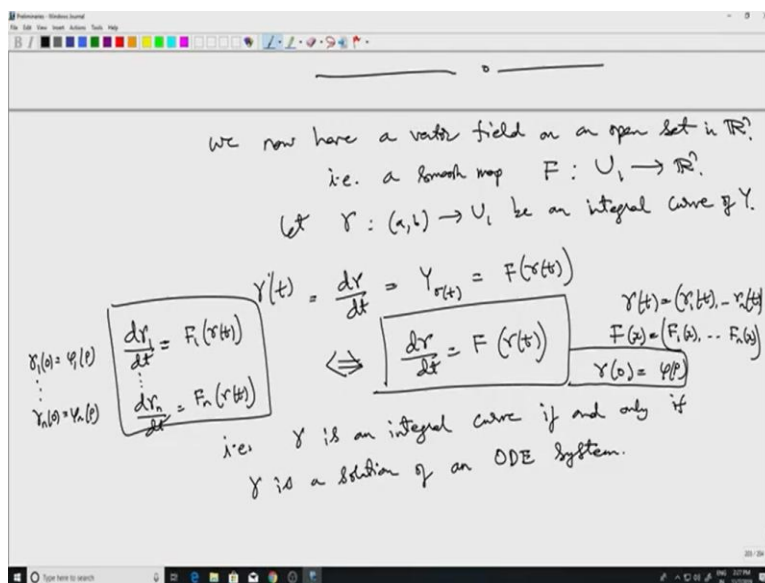 Preliminaries - Windows Journal
File Edit View Insert Actions Tools Help
we now have a vector field on an open set in ℝⁿ.
i.e. a smooth map F : U₁ → ℝⁿ.
Let γ : (a,b) → U₁ be an integral curve of Y.
γ'(t) = dγ/dt = Y_σ(t) = F(γ(t))
γ(t) = (γ₁(t), -- γₙ(t))
F(x) = (F₁(x), -- Fₙ(x))
dγ₁/dt = F₁(γ(t))
⋮
dγₙ/dt = Fₙ(γ(t))
γ₁(0) = φ₁(p)
⋮
γₙ(0) = φₙ(p)
⟺ dγ/dt = F(γ(t))
γ(0) = φ(p)
i.e. γ is an integral curve if and only if
γ is a solution of an ODE system.
Type here to search
ENG 3:27 PM